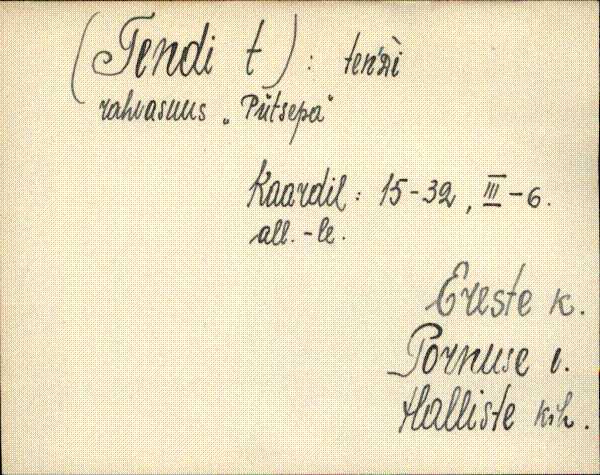 (Tendi t) : ten'di
rahvasuus „Pütsepa"
Kaardil: 15-32, III-6.
all. -le.
Ereste k.
Pornuse v.
Halliste kih.